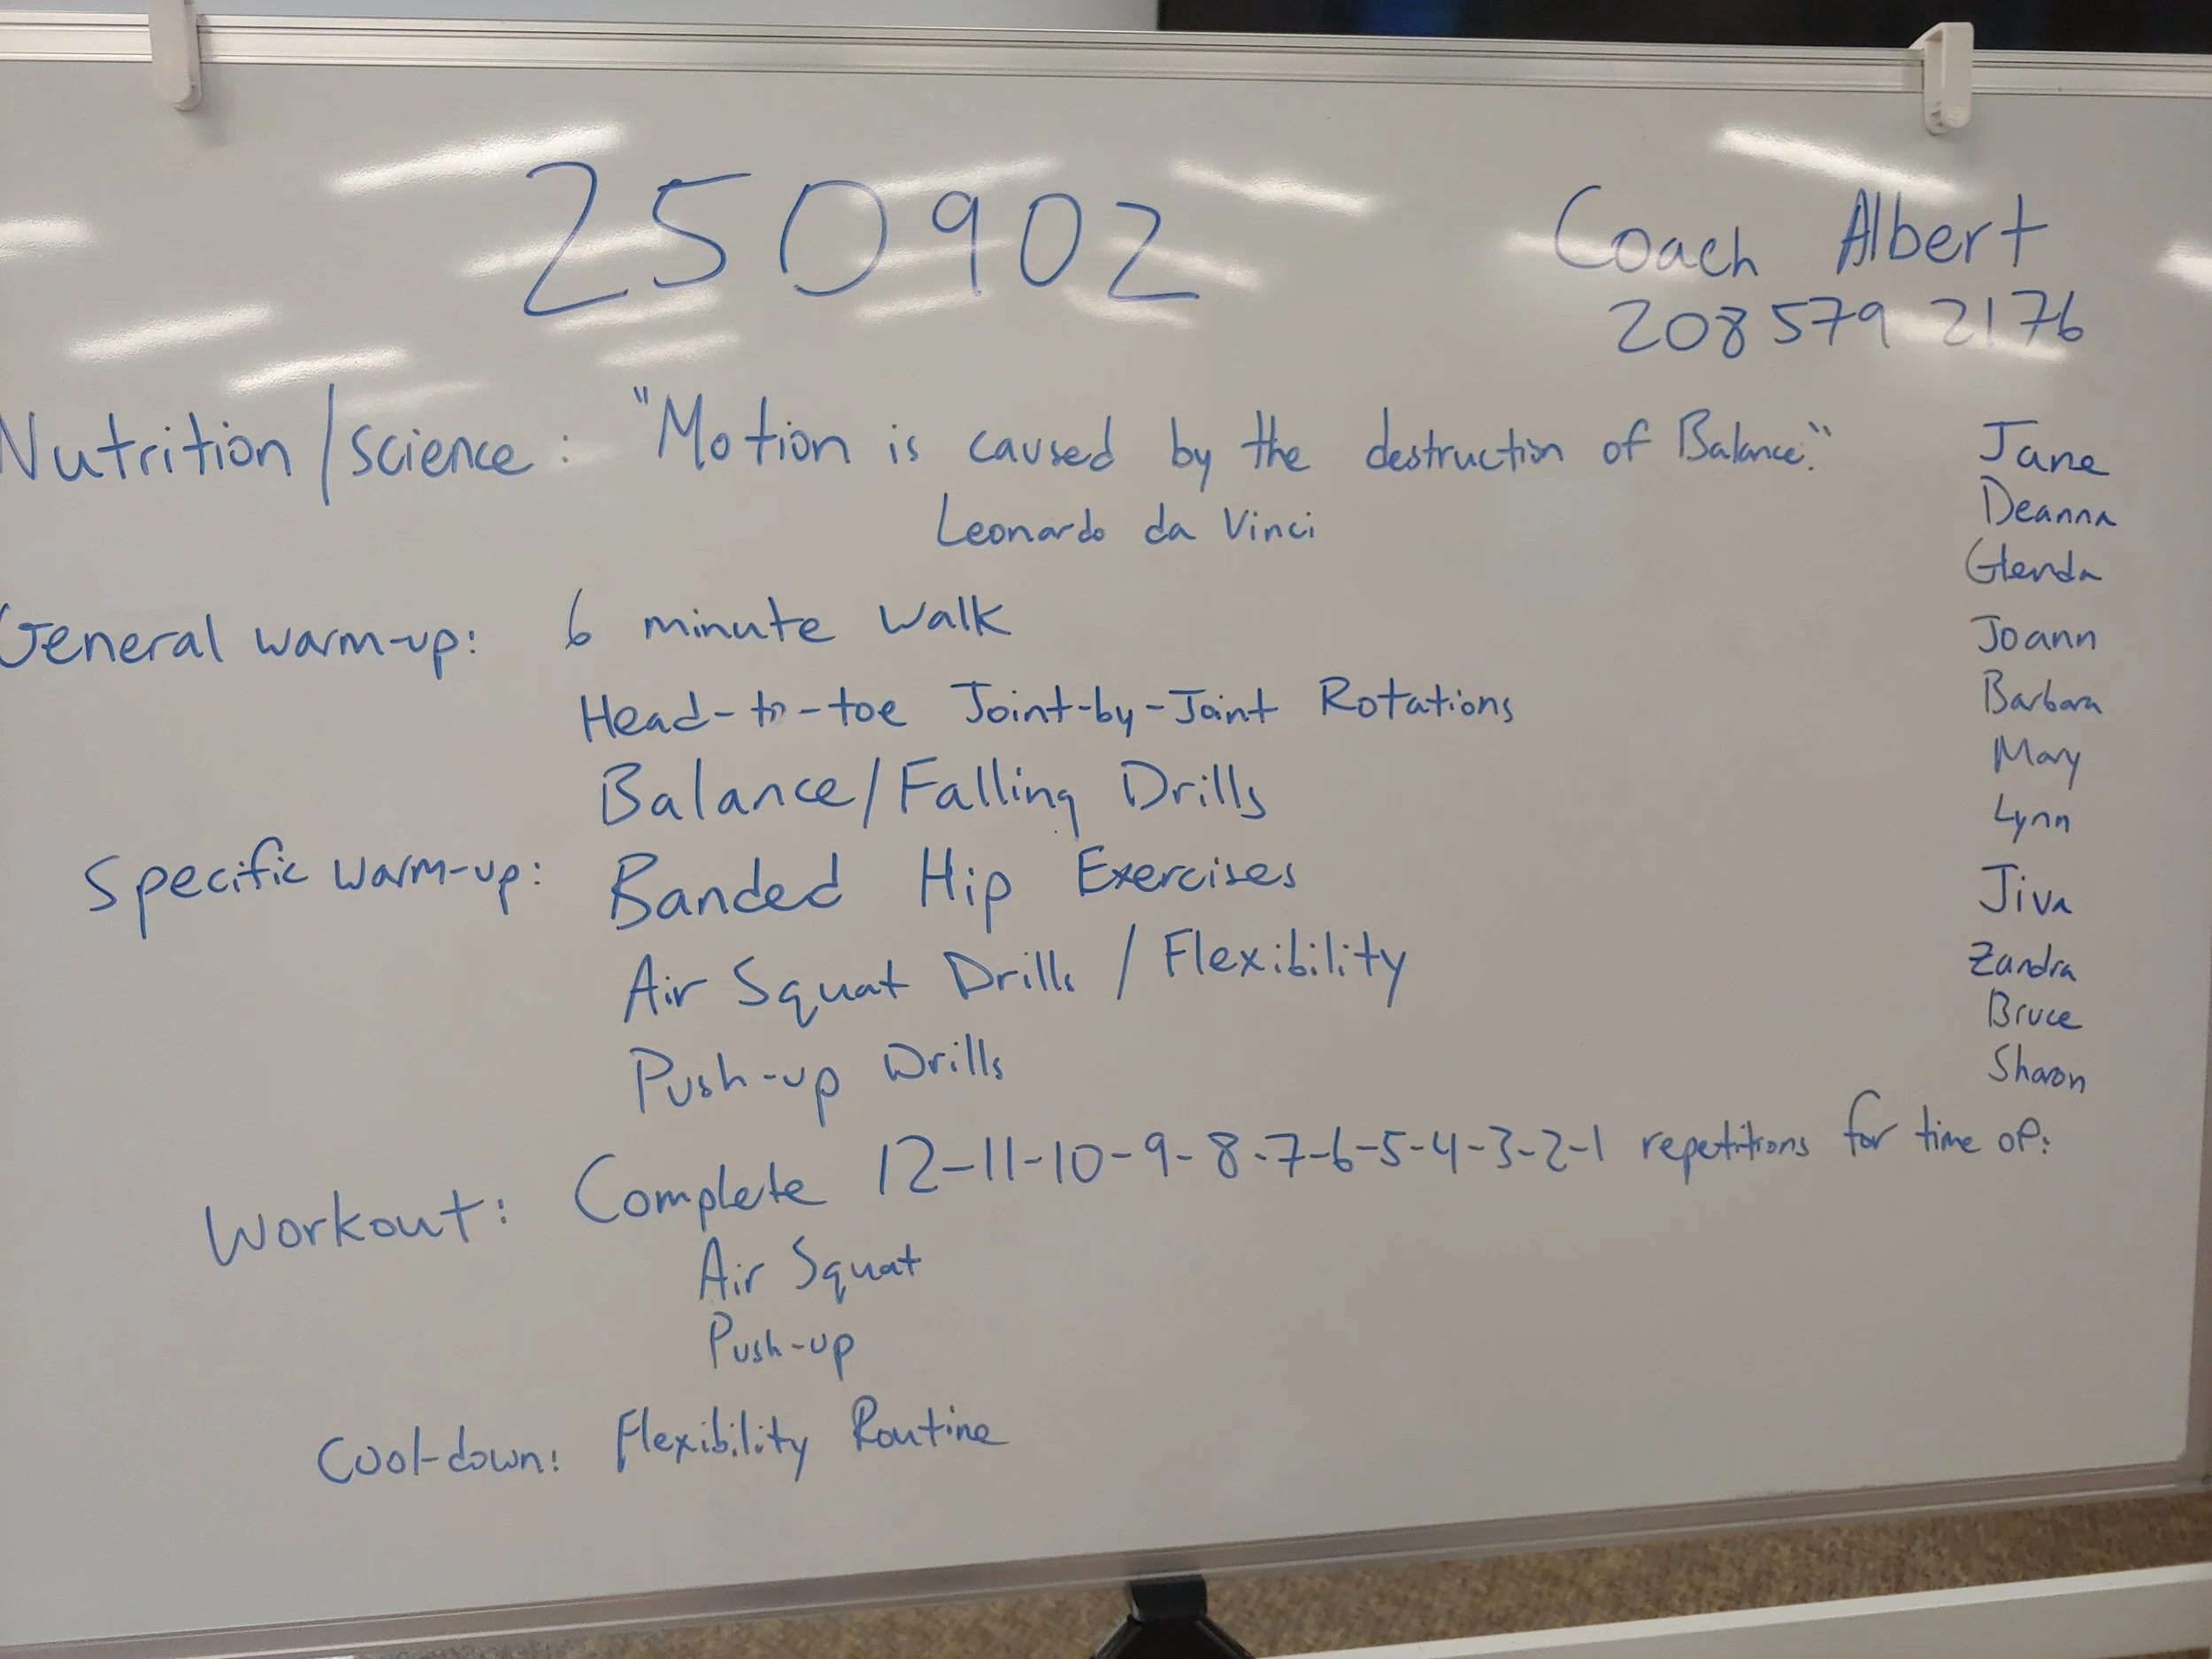 250902
Coach Albert
208 579 2176
Nutrition/science: "Motion is caused by the destruction of Balance."
Leonardo da Vinci
Jane
Deanna
Glenda
Joann
Barbara
Mary
Lynn
Jiva
Zandra
Bruce
Sharon
General warm-up: 6 minute walk
Head-to-toe Joint-by-Joint Rotations
Balance/Falling Drills
Specific warm-up: Banded Hip Exercises
Air Squat Drills / Flexibility
Push-up Drills
Workout: Complete 12-11-10-9-8-7-6-5-4-3-2-1 repetitions for time of:
Air Squat
Push-up
Cool-down: Flexibility Routine